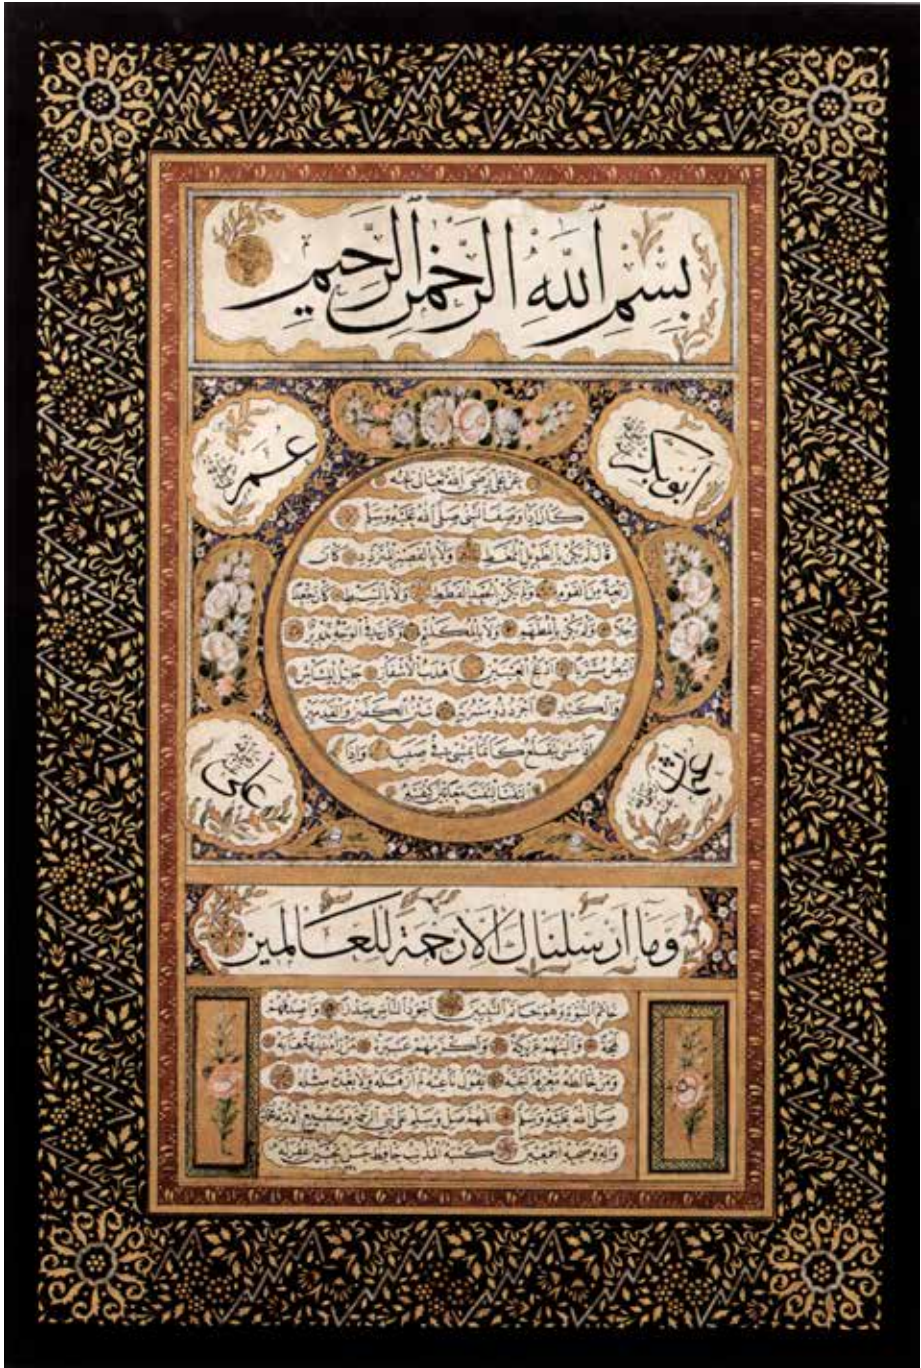 بِسْمِ اللّٰهِ الرَّحْمٰنِ الرَّحِيمِ
ابوبكر
عمر
عن علي رضي الله تعالى عنه
كان اذا وصف النبي صلى الله عليه وسلم
قال لم يكن بالطويل الممغط ولا بالقصير المتردد كان
ربعة من القوم ولم يكن بالجعد القطط ولا بالسبط كان جعدا
رجلا ولم يكن بالمطهم ولا بالمكلثم وكان في الوجه تدوير
ابيض مشرب ادعج العينين اهدب الاشفار جليل المشاش
والكتد اجرد ذو مسربة شثن الكفين والقدمين
اذا مشى يتقلع كانما يمشي في صبب واذا
التفت التفت معا بين كتفيه
عثمان
علي
وما ارسلناك الا رحمة للعالمين
خاتم النبوة وهو خاتم النبيين اجود الناس صدرا واصدقهم
لهجة والينهم عريكة واكرمهم عشيرة من رآه بديهة هابه
ومن خالطه معرفة احبه يقول ناعته لم ار قبله ولا بعده مثله
صلى الله عليه وسلم اللهم صل وسلم على نبي الرحمة وشفيع الامة محمد
وآله وصحبه اجمعين كتبه المذنب حافظ حسن تحسين غفر له